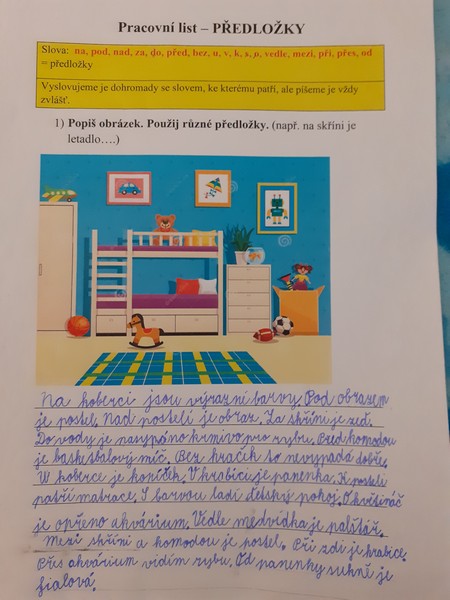 Pracovní list – PŘEDLOŽKY
Slova: na, pod, nad, za, do, před, bez, u, v, k, s, o, vedle, mezi, při, přes, od
= předložky
Vyslovujeme je dohromady se slovem, ke kterému patří, ale píšeme je vždy
zvlášť.
1) Popiš obrázek. Použij různé předložky. (např. na skříni je
letadlo….)
Na koberci jsou výrazní barvy. Pod obrazem
je postel. Nad postelí je obraz. Za skříní je zeď.
Do vody je nasypáno krmivo pro rybu. Před komodou
je basketbalový míč. Bez hraček to nevypadá dobře.
U koberce je koníček. V krabici je panenka. K posteli
patří matrace. S barvou ladí dětský pokoj. O květináč
je opřeno akvárium. Vedle medvídka je polštář.
Mezi skříní a komodou je postel. Při zdi je krabice.
Přes akvárium vidím rybu. Od panenky sukně je
fialová.